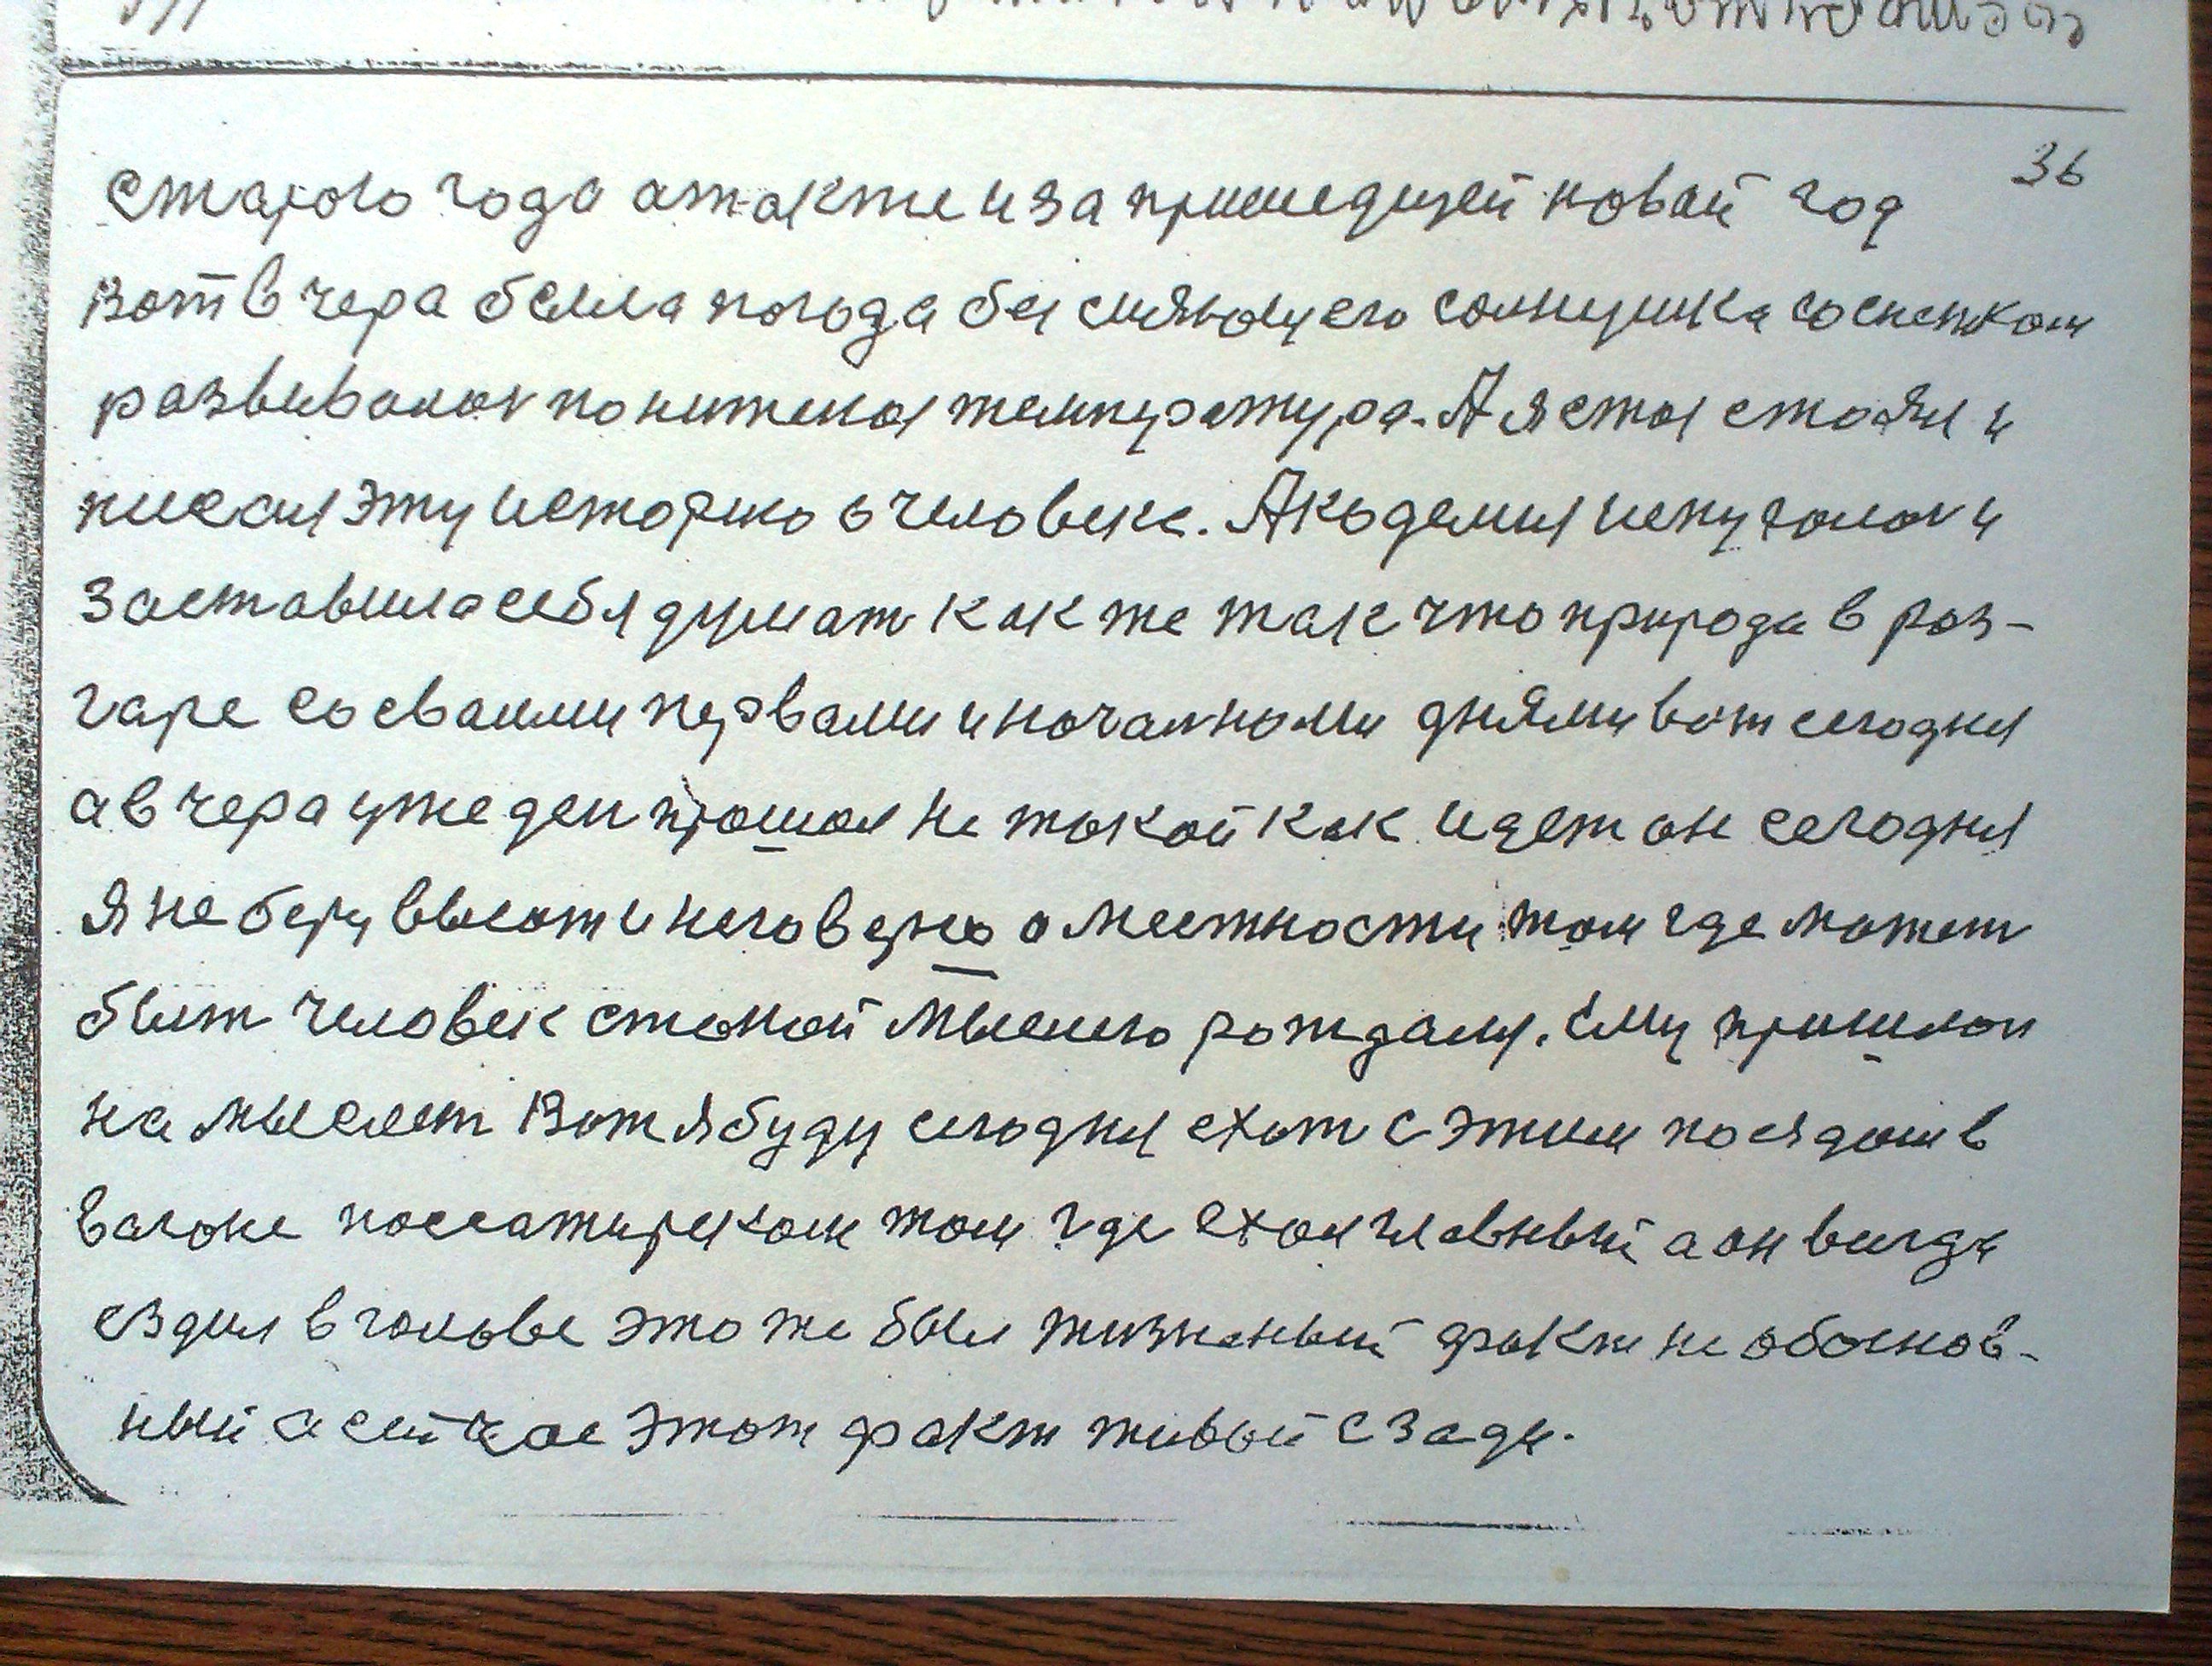 36
старого года а также и за пришедщей новай год
Вот вчера была погода без сияющего солнушка со снежком
развивалас понижена температура. А я стоя стоял и
писал эту историю о человеке. Академия испугалас и
заставила себя думат как же так что природа в раз-
гаре со сваими первами и началнами днями вот сегодня
а вчера уже ден прошол не такой как идет он сегодня
Я не беру высот и не говорю о местности там где можеш
быт человек с такой мыслю рождалис. Ему пришлос
на мыслет Вот я буду сегодня ехат с этим поездам в
вагоне пассажирском там где ехал главный а он всегда
ездил в голове это же был жизненый факт не обоснов-
ный а сейчас этот факт живой сзади.